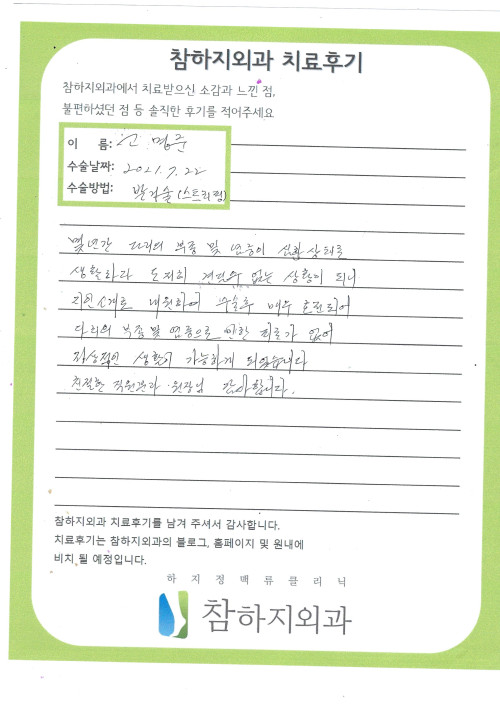 참하지외과 치료후기
참하지외과에서 치료받으신 소감과 느낀 점,
불편하셨던 점 등 솔직한 후기를 적어주세요
이 름: 고 명준
수술날짜: 2021.7.22
수술방법: 발거술 (스트리핑)
몇년간 다리의 부종 및 염증이 심한 상태로
생활하다 도저히 견딜수 없는 상황이 되니
지인소개로 내원하여 수술후 매우 호전되어
다리의 부종 및 염증으로 인한 피로가 없어
정상적인 생활이 가능하게 되었습니다
친절한 직원분과 원장님 감사합니다.
참하지외과 치료후기를 남겨 주셔서 감사합니다.
치료후기는 참하지외과의 블로그, 홈페이지 및 원내에
비치 될 예정입니다.
하지정맥류클리닉
참하지외과